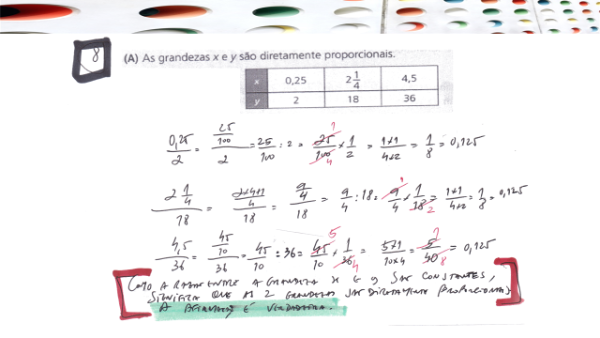 8
(A) As grandezas x e y são diretamente proporcionais.
x 0,25 2 1/4 4,5
y 2 18 36
0,25/2 = 25/100/2 = 25/100 : 2 = 25/100 × 1/2 = 1×1/4×2 = 1/8 = 0,125
2 1/4/18 = 2×4+1/4/18 = 9/4/18 = 9/4 : 18 = 9/4 × 1/18 = 1×1/4×2 = 1/8 = 0,125
4,5/36 = 45/10/36 = 45/10 : 36 = 45/10 × 1/36 = 5×1/10×4 = 5/40 = 0,125
COMO A RAZÃO ENTRE A GRANDEZA X E Y SÃO CONSTANTES,
SIGNIFICA QUE AS 2 GRANDEZAS SÃO DIRETAMENTE PROPORCIONAIS
A AFIRMAÇÃO É VERDADEIRA.